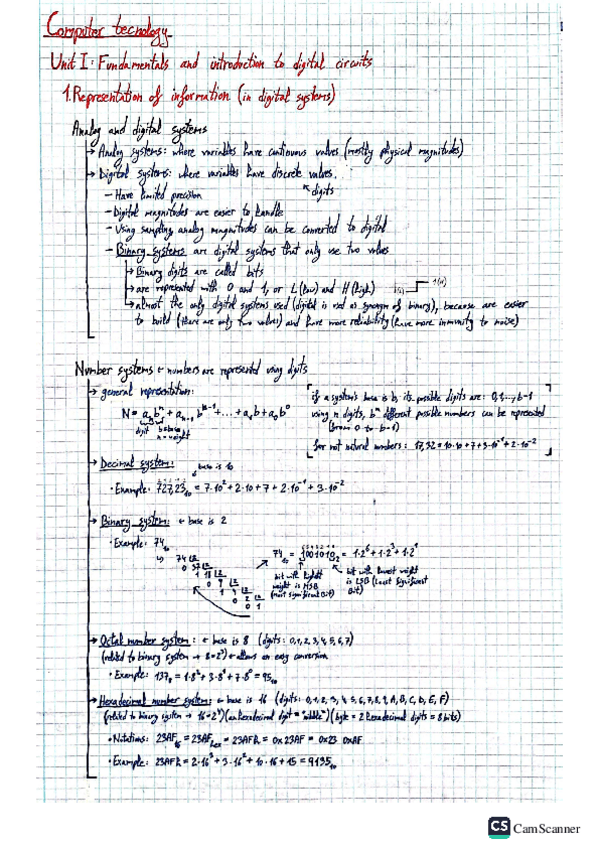 Computer tecnology
Unit I: Fundamentals and introduction to digital circuits
1. Representation of information (in digital systems)
Analog and digital systems
→ Analog systems: where variables have continuous values (mostly physical magnitudes)
→ Digital systems: where variables have discrete values.
digits
- Have limited precision
- Digital magnitudes are easier to handle
- Using sampling, analog magnitudes can be converted to digital
- Binary systems are digital systems that only use two values
→ Binary digits are called bits
→ are represented with 0 and 1, or L (low) and H (high)
→ almost the only digital systems used (digital is used as synonym of binary), because are easier
to build (there are only two values) and have more reliability (have more immunity to noise)
Number systems ← numbers are represented using digits
→ general representation:
N = aₙbⁿ + aₙ₋₁bⁿ⁻¹ + ... + a₁b + a₀b⁰
digit b=base
n=weight
if a system's base is b, its possible digits are: 0,1,...,b-1
using n digits, bⁿ different possible numbers can be represented
for not natural numbers: 17,32 = 1·10 + 7 + 3·10⁻¹ + 2·10⁻²
→ Decimal system: base is 10
· Example: 727,23₁₀ = 7·10² + 2·10 + 7 + 2·10⁻¹ + 3·10⁻²
→ Binary system: ← base is 2
· Example: 74₁₀
74 |2
0 37 |2
1 18 |2
0 9 |2
1 4 |2
0 2 |2
0 1
74₁₀ = 1001010₂ = 1·2⁶ + 1·2³ + 1·2¹
bit with highest
weight is MSB
(most significant Bit)
bit with lowest weight
is LSB (Least Significant
Bit)
→ Octal number system: ← base is 8 (digits: 0,1,2,3,4,5,6,7)
(related to binary system → 8=2³) ← allows an easy conversion
· Example: 137₈ = 1·8² + 3·8¹ + 7·8⁰ = 95₁₀
→ Hexadecimal number system: ← base is 16 (digits: 0,1,2,3,4,5,6,7,8,9,A,B,C,D,E,F)
(related to binary system → 16=2⁴) (an hexadecimal digit = "nibble") (byte = 2 hexadecimal digits = 8 bits)
· Notations: 23AF₁₆ = 23AFₕₑₓ = 23AFh = 0x23AF = 0x23 0xAF
· Example: 23AFh = 2·16³ + 3·16² + 10·16 + 15 = 9135₁₀
CS CamScanner